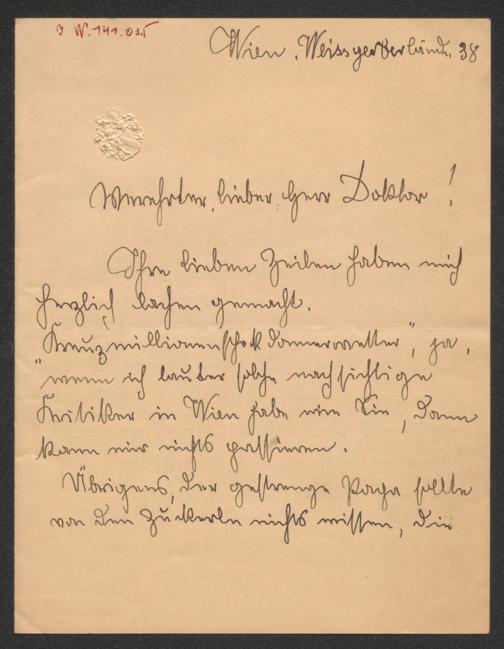 I N. 141.035
Wien, Weissgerberlände 38
Verehrter, lieber Herr Doktor!
Ihre lieben Zeilen haben mich
herzlich lachen gemacht.
„Kreuzmillionenschockdonnerwetter", ja,
wenn ich lauter solche nachsichtige
Kritiker in Wien habe wie Sie, dann
kann mir nichts passieren.
Übrigens, der gestrenge Papa sollte
von den Zuckerln nichts wissen, die